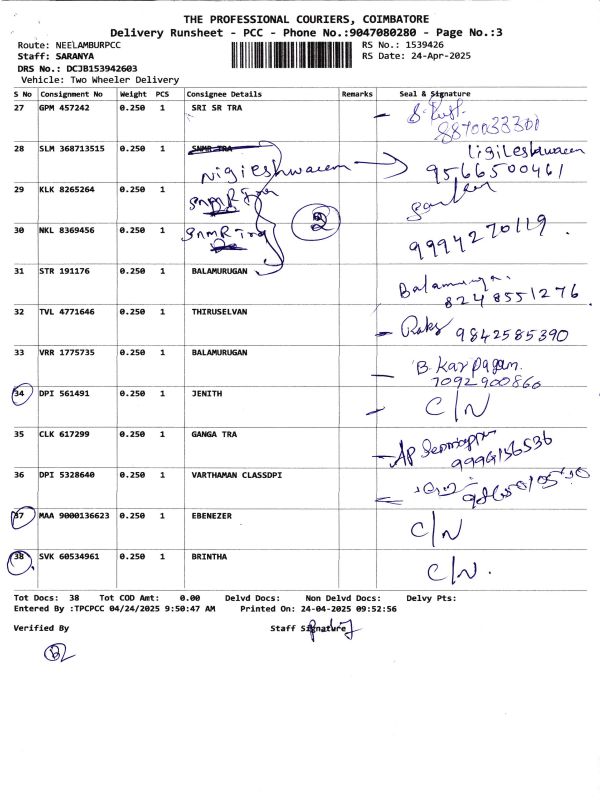 THE PROFESSIONAL COURIERS, COIMBATORE
Delivery Runsheet - PCC - Phone No.:9047080280 - Page No.:3
Route: NEELAMBURPCC RS No.: 1539426
Staff: SARANYA RS Date: 24-Apr-2025
DRS No.: DCJB153942603
Vehicle: Two Wheeler Delivery
S No Consignment No Weight PCS Consignee Details Remarks Seal & Signature
27 GPM 457242 0.250 1 SRI SR TRA
8870033300
28 SLM 368713515 0.250 1 SNMR TRA
Nigileshwaren 9566500461
29 KLK 8265264 0.250 1
30 NKL 8369456 0.250 1 SNMR Tra
9994270119
31 STR 191176 0.250 1 BALAMURUGAN Balamuruga.
8248551276
32 TVL 4771646 0.250 1 THIRUSELVAN
9842585390
33 VRR 1775735 0.250 1 BALAMURUGAN B. Karpagam.
7092900860
34 DPI 561491 0.250 1 JENITH C/N
35 CLK 617299 0.250 1 GANGA TRA
9994156536
36 DPI 5328640 0.250 1 VARTHAMAN CLASSDPI
37 MAA 9000136623 0.250 1 EBENEZER C/N
38 SVK 60534961 0.250 1 BRINTHA C/N.
Tot Docs: 38 Tot COD Amt: 0.00 Delvd Docs: Non Delvd Docs: Delvy Pts:
Entered By :TPCPCC 04/24/2025 9:50:47 AM Printed On: 24-04-2025 09:52:56
Verified By Staff Signature